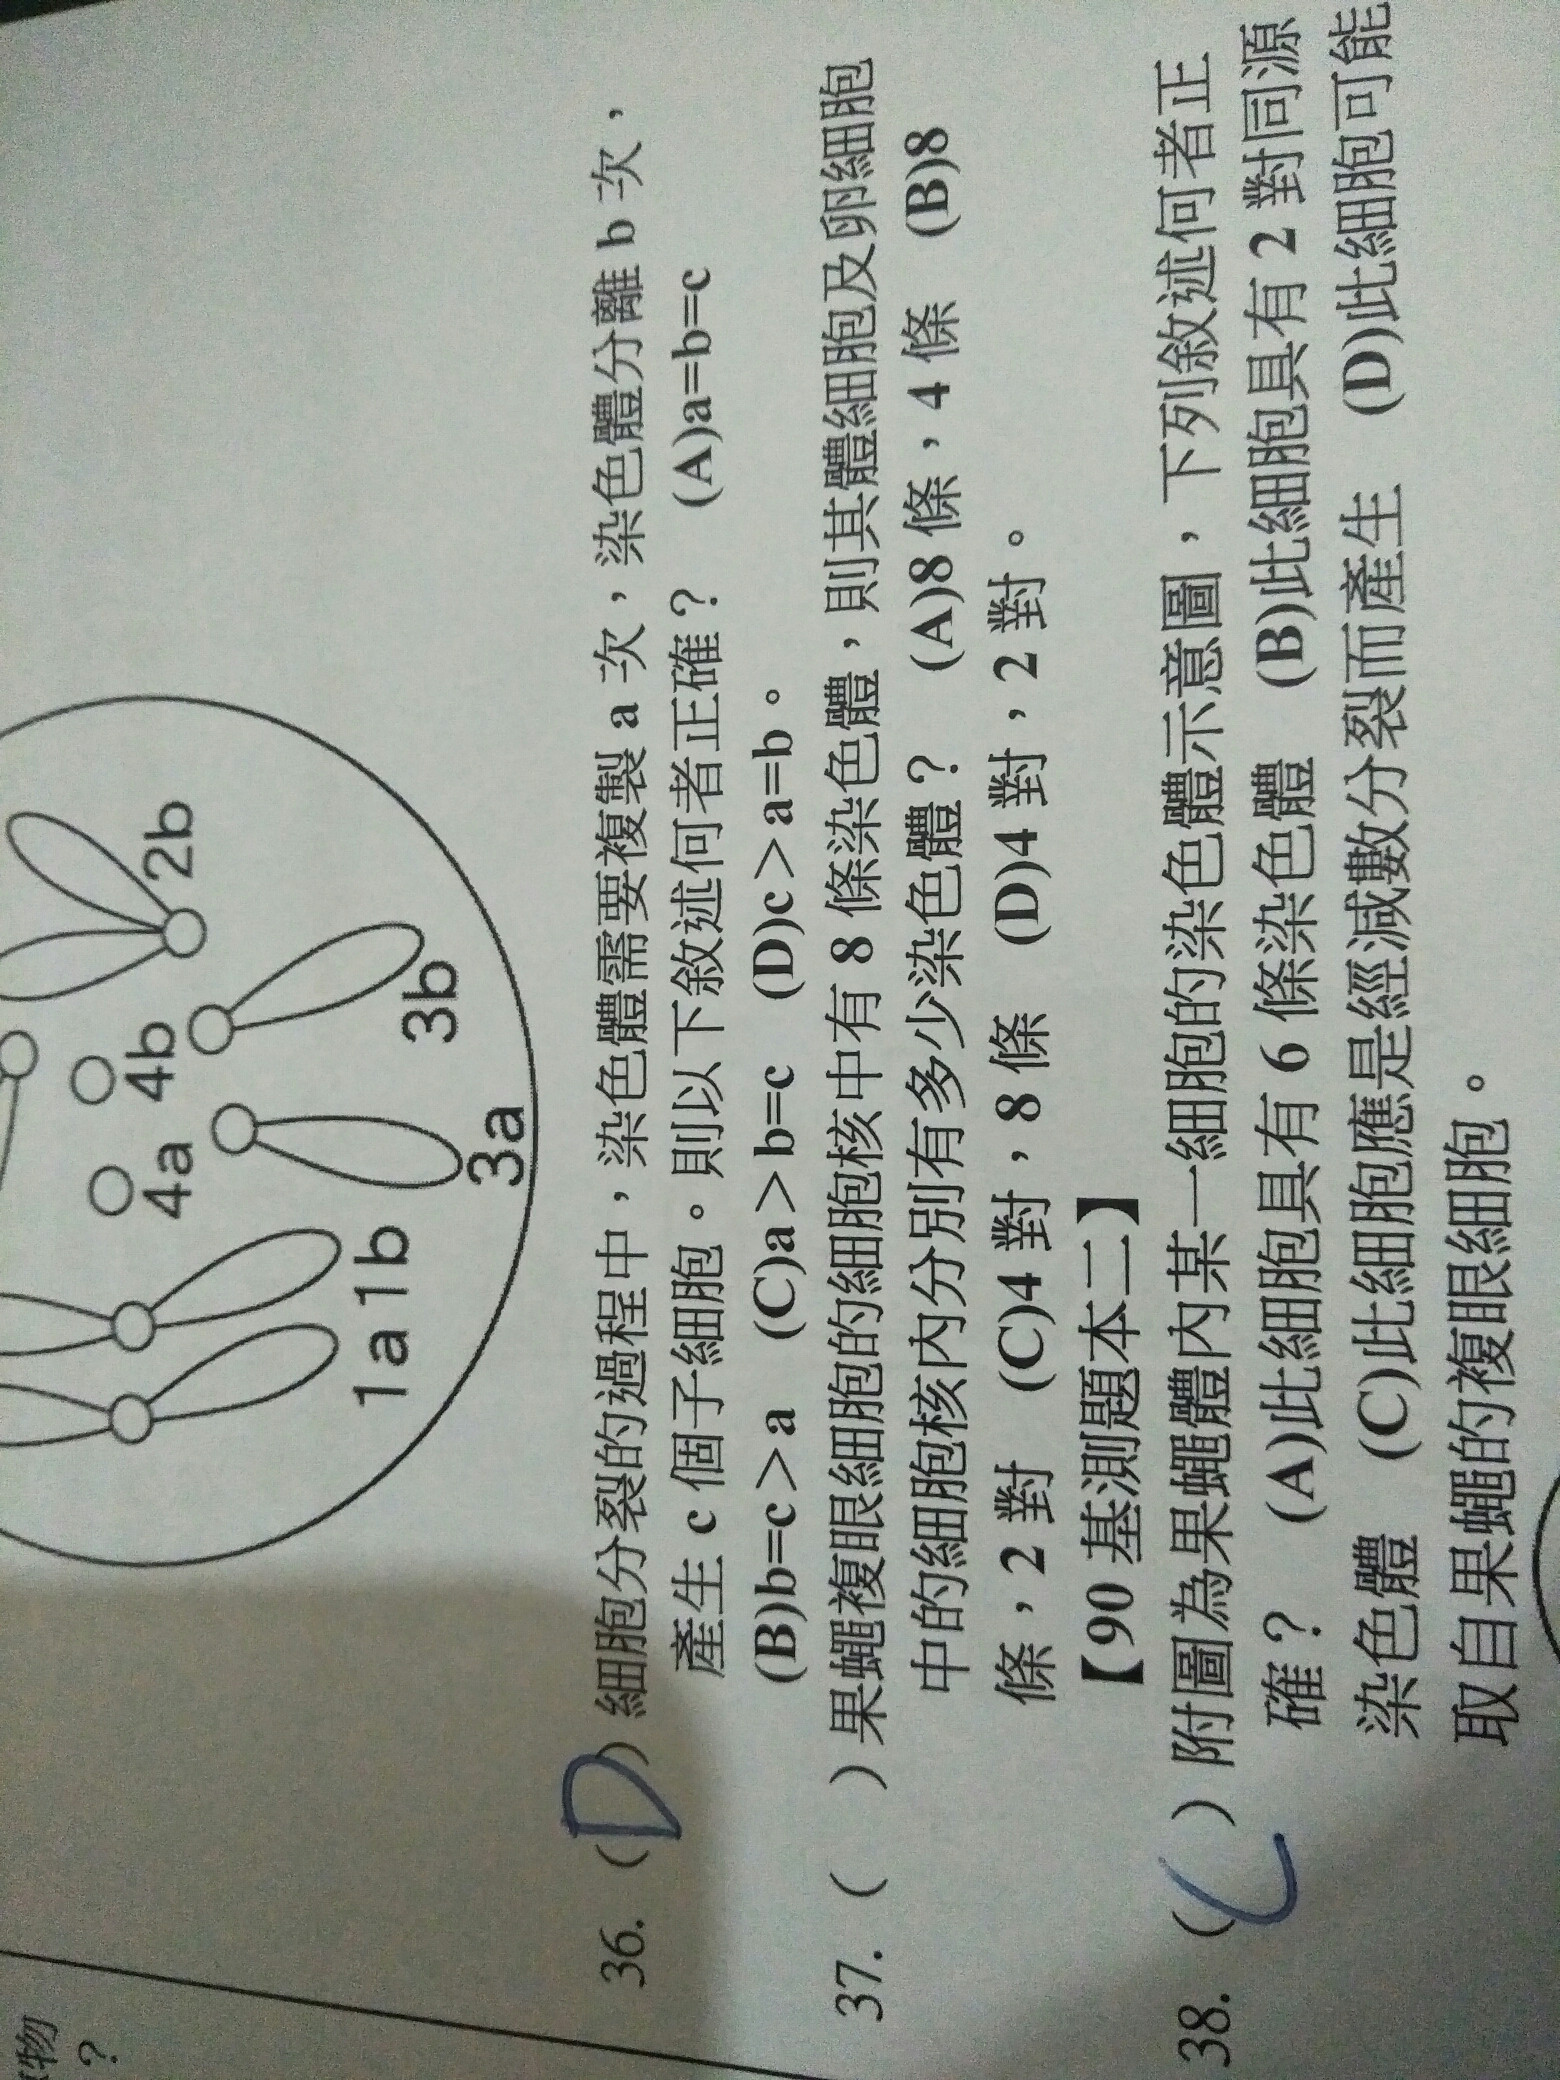 物
?
2b
4a 4b
3b
1a 1b
3a
36. (D)細胞分裂的過程中，染色體需要複製 a 次，染色體分離 b 次，
產生 c 個子細胞。則以下敘述何者正確？ (A)a=b=c
(B)b=c＞a (C)a＞b=c (D)c＞a=b。
37. ( )果蠅複眼細胞的細胞核中有 8 條染色體，則其體細胞及卵細胞
中的細胞核內分別有多少染色體？ (A)8 條，4 條 (B)8
條，2 對 (C)4 對，8 條 (D)4 對，2 對。
【90 基測題本二】
38. (C)附圖為果蠅體內某一細胞的染色體示意圖，下列敘述何者正
確？ (A)此細胞具有 6 條染色體 (B)此細胞具有 2 對同源
染色體 (C)此細胞應是經減數分裂而產生 (D)此細胞可能
取自果蠅的複眼細胞。